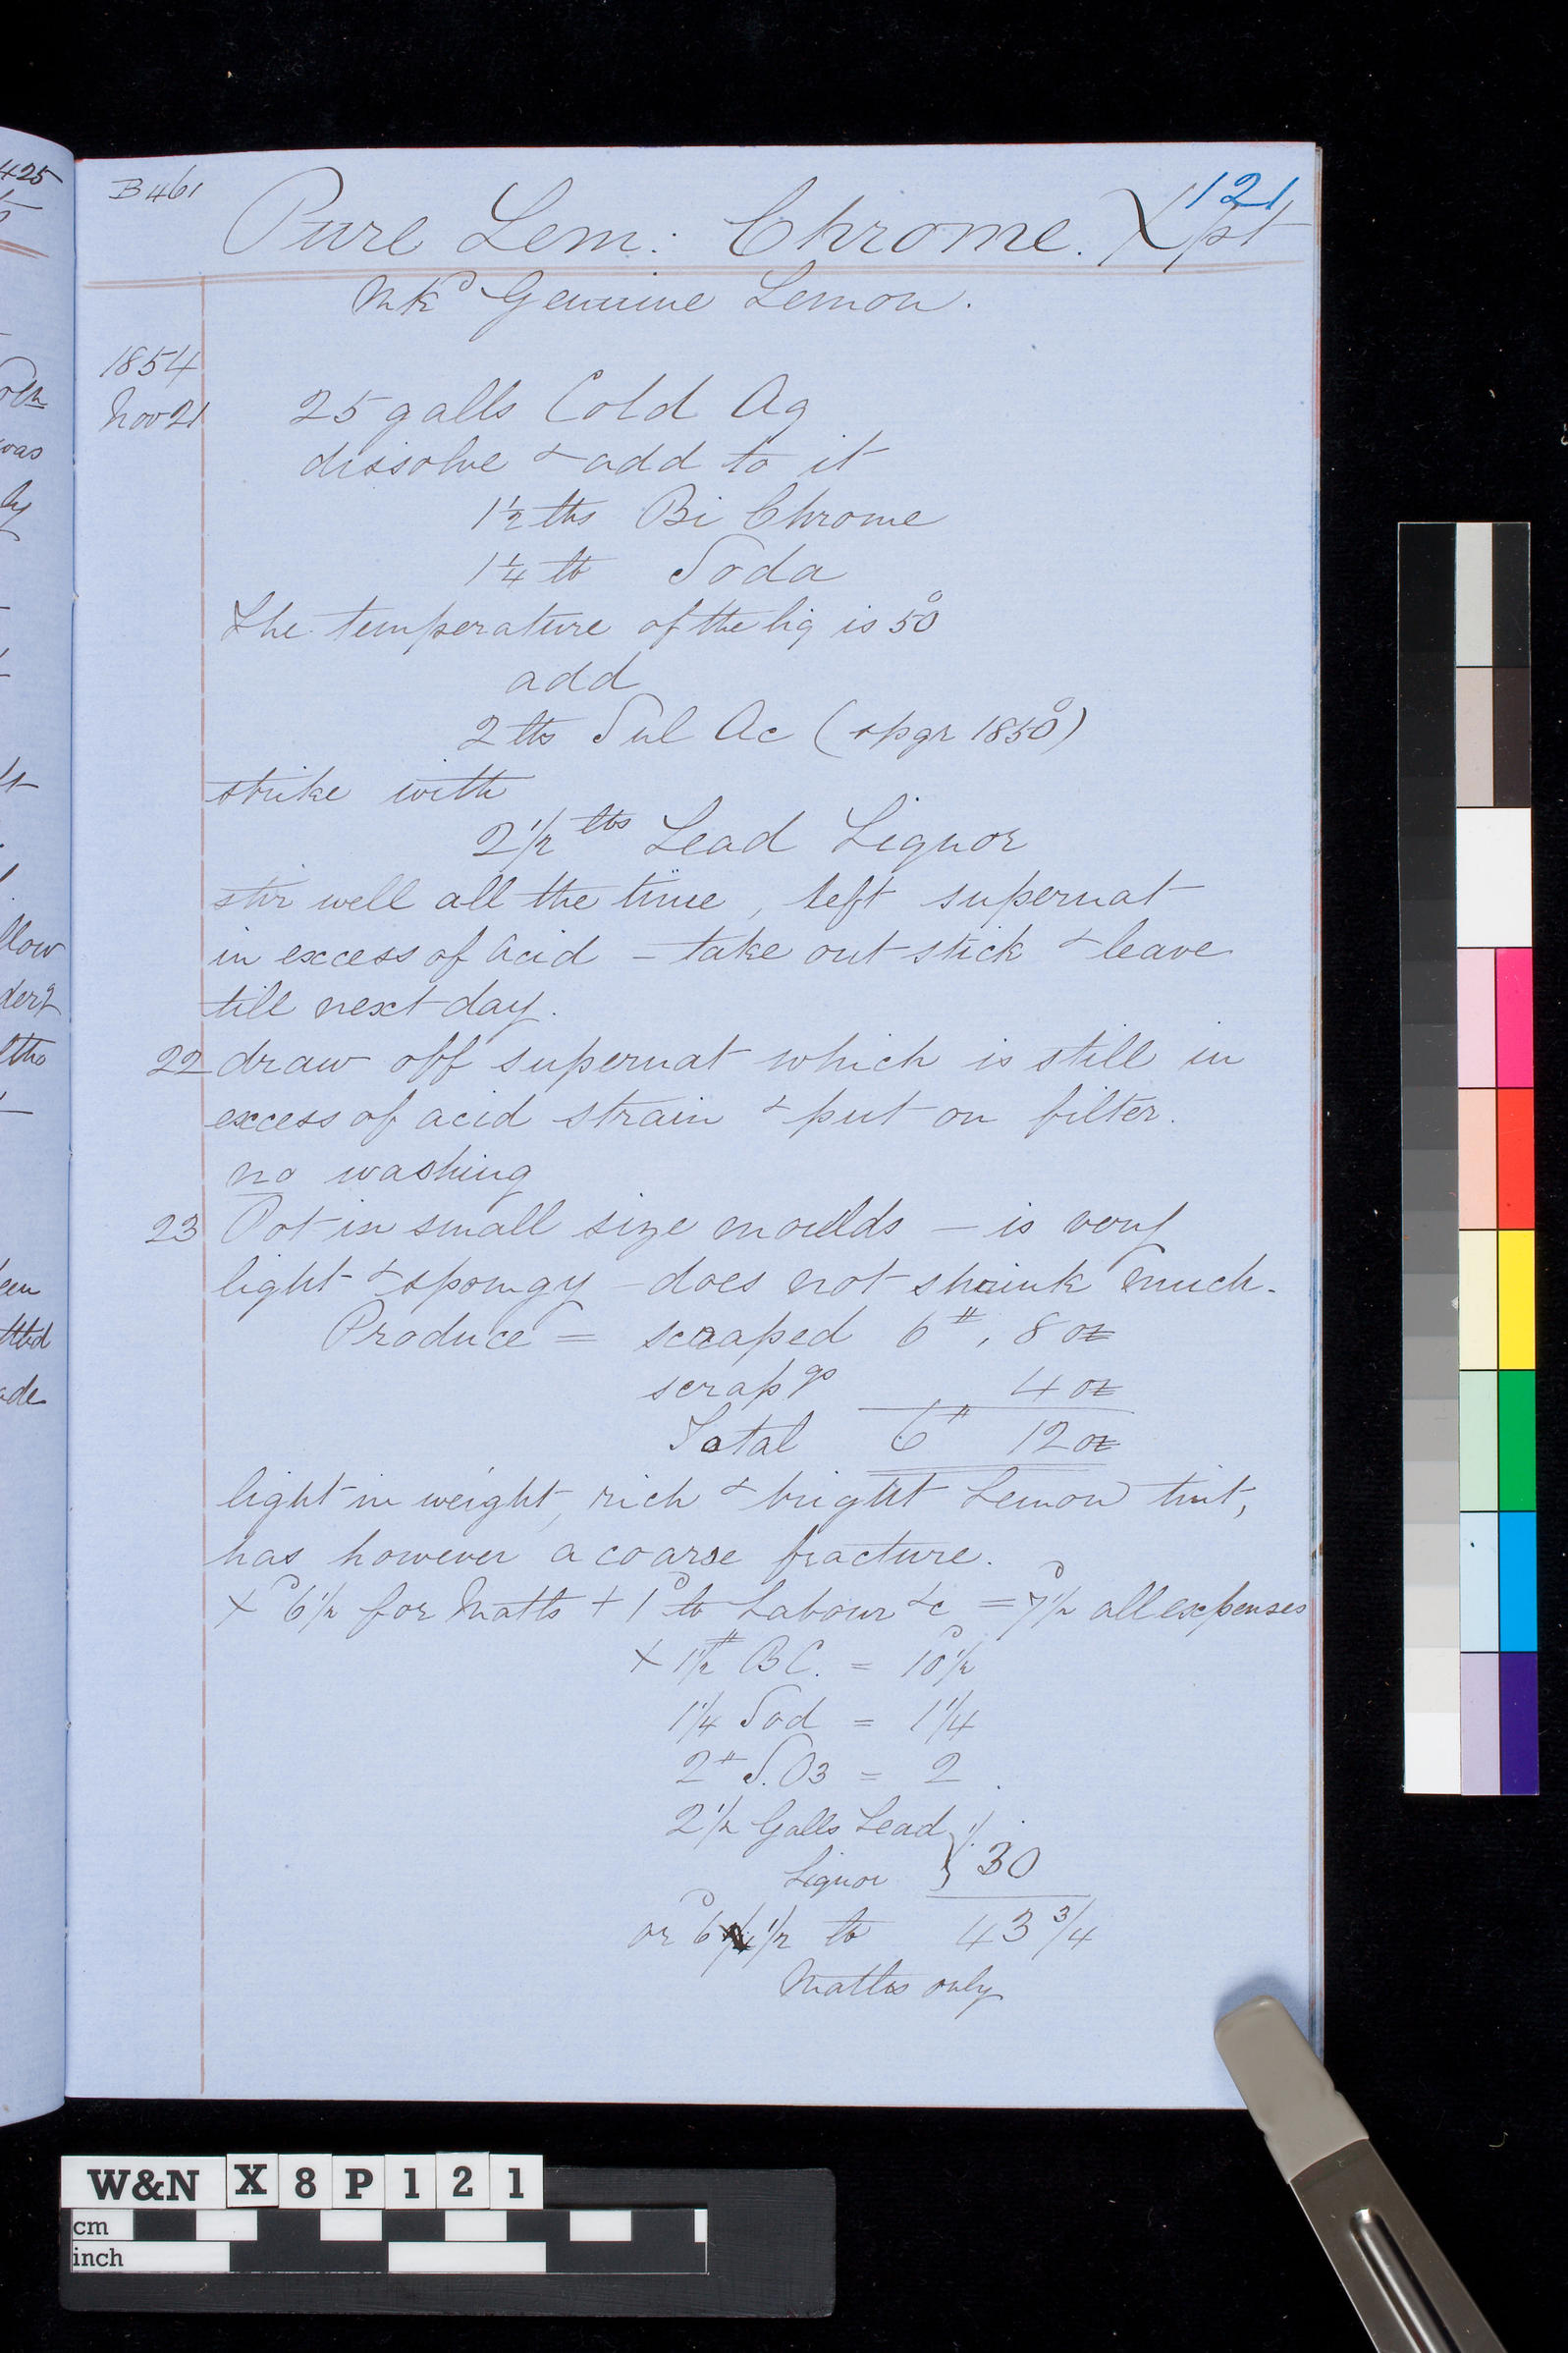 B461
121
Pure Lem: Chrome. Xpt
Mkd Genuine Lemon.
1854
Nov 21
25 galls Cold Aq
dissolve & add to it
1½ lbs Bi Chrome
1¼ lb Soda
The temperature of the liq is 50°
add
2 lbs Sul Ac (spgr 1850°)
strike with
2½ lbs Lead Liquor
stir well all the time, left supernat
in excess of acid - take out stick & leave
till next day.
22 draw off supernat which is still in
excess of acid strain & put on filter.
no washing
23 Pot in small size moulds - is very
light & spongy - does not shrink much.
Produce = scraped 6#, 8 oz
scrapgs 4 oz
Total 6# 12 oz
light in weight, rich & bright Lemon tint,
has however a coarse fracture.
X 6½d for Matls + 1d lb Labour &c = 7½d all expenses
X 1½# BC. = 10½d
1¼ Sod = 1¼
2# S.O3 = 2
2½ Galls Lead 1/.
Liquor } 30
or 6½d lb 43¾
Matls only
425
was
llow
W&N X 8 P 1 2 1
cm
inch